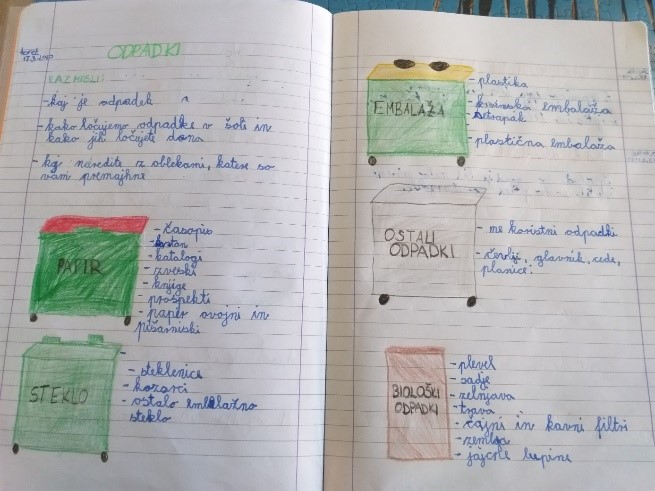 torek
17.3.2020
ODPADKI
RAZMISLI:
- kaj je odpadek
- kako ločujemo odpadke v šoli in
kako jih ločujete doma
- kaj naredite z oblekami, katere so
vam premajhne
PAPIR
- časopis
- karton
- katalogi
- zvezki
- knjige
- prospekti
- papir ovojni in
pisarniški
STEKLO
- steklenice
- kozarci
- ostalo embalažno
steklo
EMBALAŽA
- plastika
- kovinska embalaža
- tetrapak
- plastična embalaža
OSTALI
ODPADKI
- ne koristni odpadki
- čevlji, glavnik, cede,
plenice
BIOLOŠKI
ODPADKI
- plevel
- sadje
- zelenjava
- trava
- čajni in kavni filtri
- zemlja
- jajčne lupine